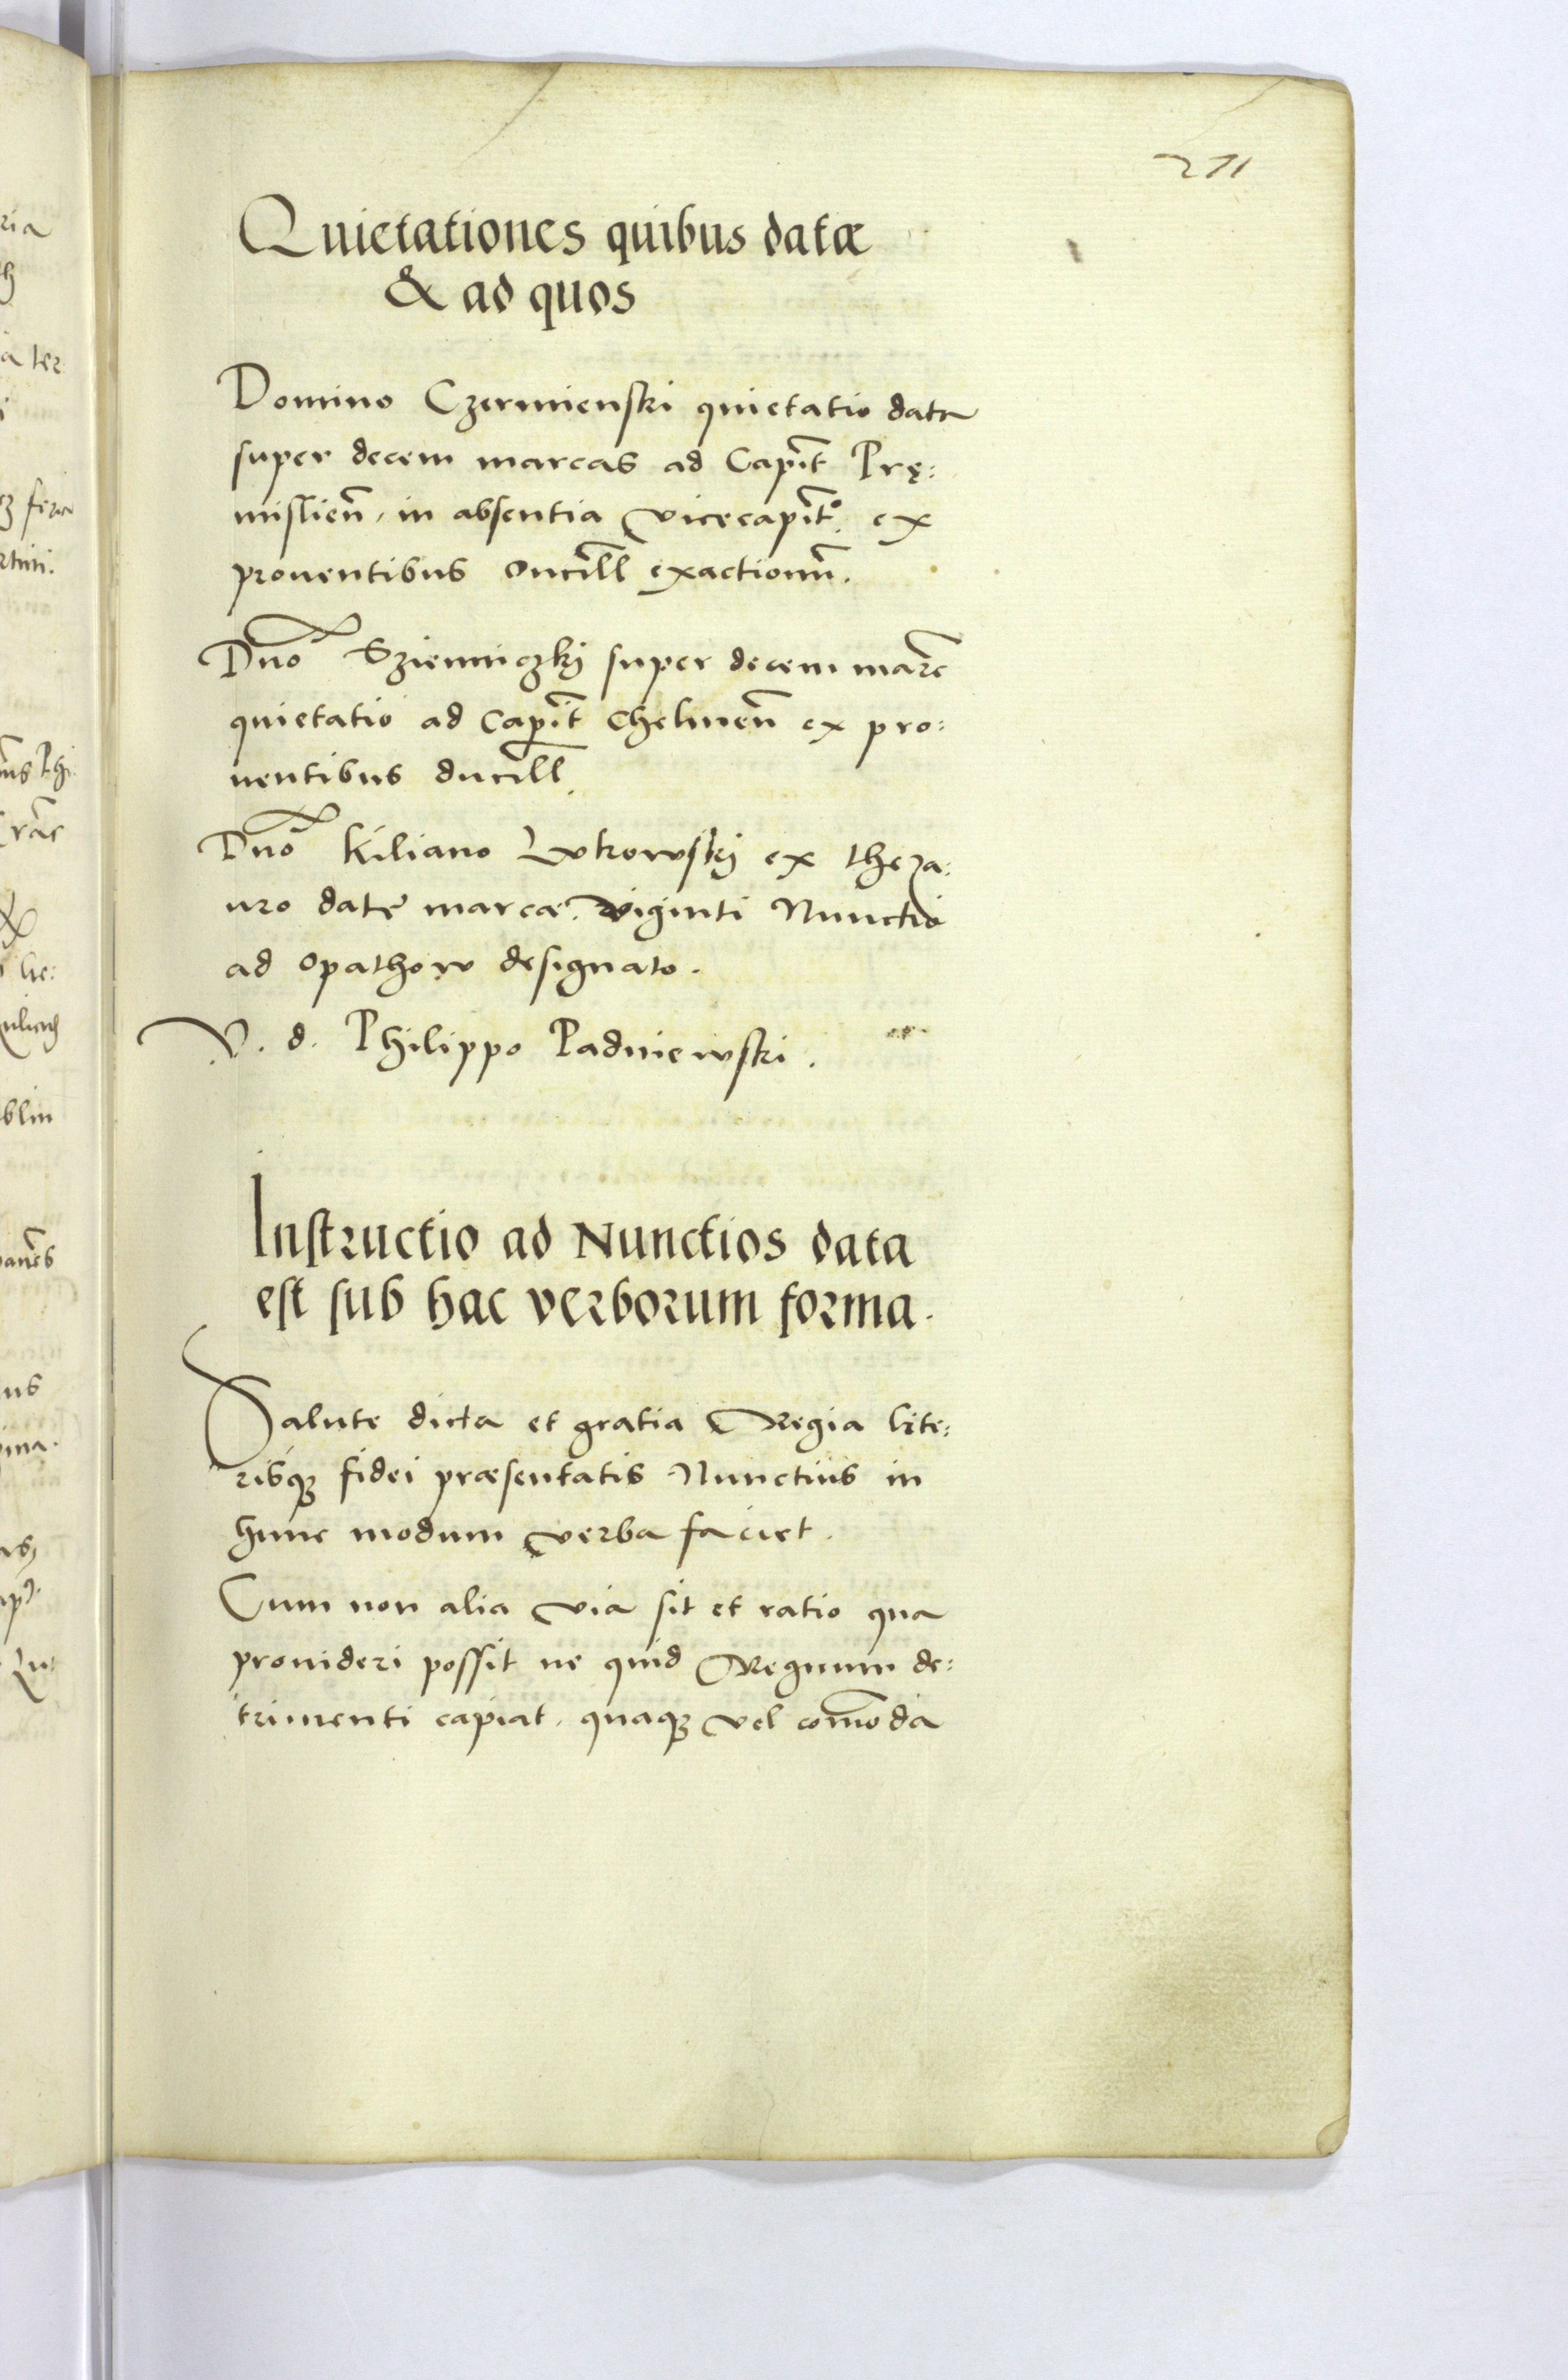 271
Quietationes quibus datæ
& ad quos
Domino Czermienski quietatio data
super decem marcas ad Capit̃ Prę:
mislień, in absentia vicecapit̃º ex
prouentibus ducill̃ exactionũ.
Dño Sziemiczkÿ super decem marc̃
quietatio ad Capit̃ Chelmeñ ex pro:
uentibus ducill̃.
Dño Kiliano Lutkowskÿ ex theza:
uro datę marcæ viginti Nunctio
ad Opathow designato.
V. d. Philippo Padniewski.
Instructio ad Nunctios data
est sub hac verborum forma.
Salute dicta et gratia Regia lite:
risqꝫ fidei præsentatis Nunctius in
hunc modum verba faciet.
Cum non alia via sit et ratio qua
prouideri possit ne quid Regnum de:
trimenti capiat, quaqꝫ vel com̃oda